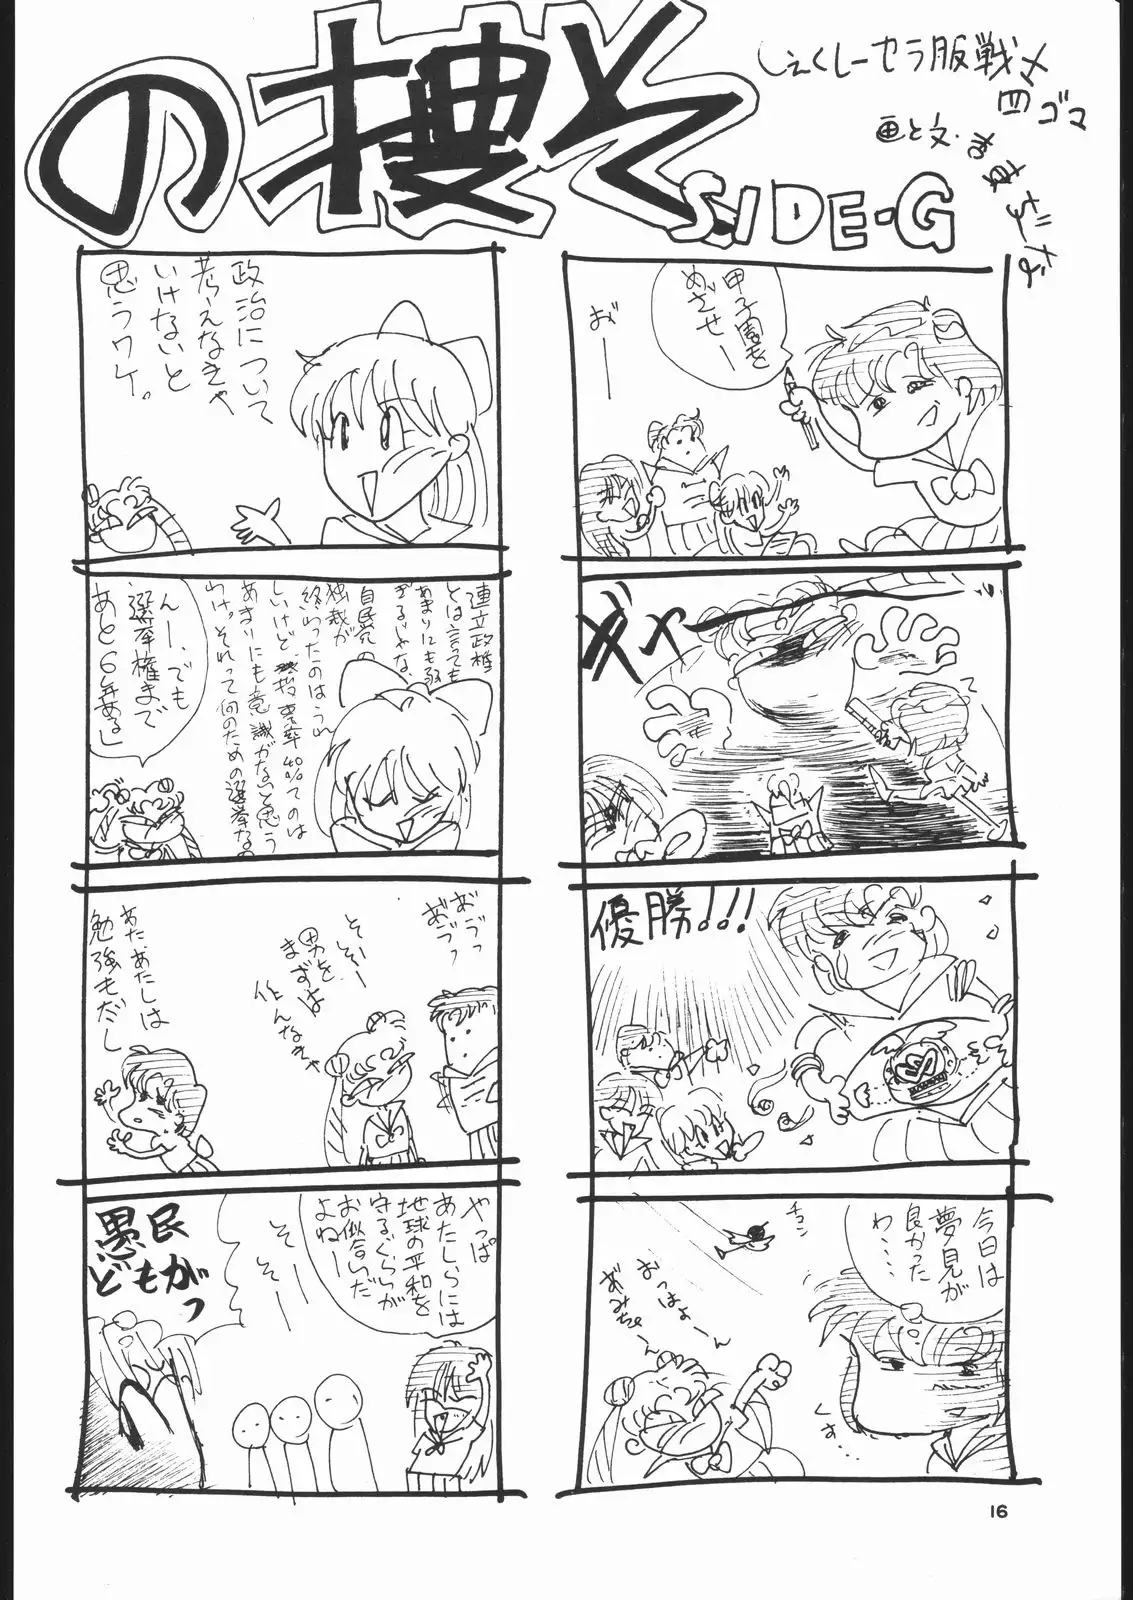 SIDE-G
しぇくしーセラ服戦士
四ゴマ
画と文・
甲子園を
めざせー
おー
ギャー
優勝!!!
今日は
夢見が
良かった
わ‥‥
チュン
おっはよーん
あみちゃーん
くす…
政治について
考えなきゃ
いけないと
思うワケ。
連立政権
とは言っても
あまりにも弱
すぎるじゃない
自民党の
独裁が
終わったのはうれ
しいけど投票率40%てのは
あまりにも意識がないと思う
わけ。それって何のための選挙なの
んー、でも
選挙権まで
あと6年ある」
おづっ
おづっ
そ、そー
男を
まずは
作んなきゃ
あた、あたしは
勉強もだし
やっぱ
あたしらには
地球の平和を
守るぐらいが
お似合いだ
よねー
そー
そー
愚民
どもがっ
16